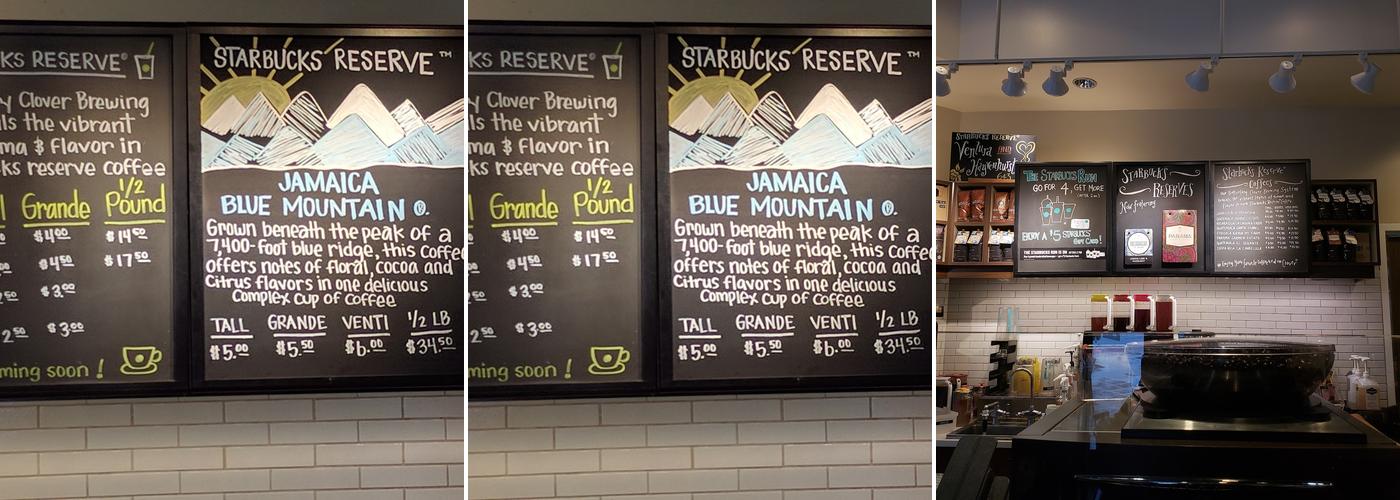 KS RESERVE®
y Clover Brewing
ls the vibrant
ma & flavor in
ks reserve coffee
Grande 1/2 Pound
$4.00 $14.50
$4.50 $17.50
$3.00
2.50 $3.00
ming soon !
STARBUCKS RESERVE™
JAMAICA
BLUE MOUNTAIN ®.
Grown beneath the peak of a
7,400-foot blue ridge, this coffee
offers notes of floral, cocoa and
citrus flavors in one delicious
Complex cup of coffee
TALL GRANDE VENTI 1/2 LB
$5.00 $5.50 $6.00 $34.50
KS RESERVE®
y Clover Brewing
ls the vibrant
ma & flavor in
ks reserve coffee
Grande 1/2 Pound
$4.00 $14.50
$4.50 $17.50
$3.00
2.50 $3.00
ming soon !
STARBUCKS RESERVE™
JAMAICA
BLUE MOUNTAIN ®.
Grown beneath the peak of a
7,400-foot blue ridge, this coffee
offers notes of floral, cocoa and
citrus flavors in one delicious
Complex cup of coffee
TALL GRANDE VENTI 1/2 LB
$5.00 $5.50 $6.00 $34.50
STARBUCKS RESERVE
Ventura AND
Hayvenhurst
THE STARBUCKS RUN
GO FOR 4, GET MORE
ENJOY A $5 STARBUCKS
CARD
STARBUCKS
RESERVES
Now featuring
PANAMA
Starbucks Reserve
Coffees